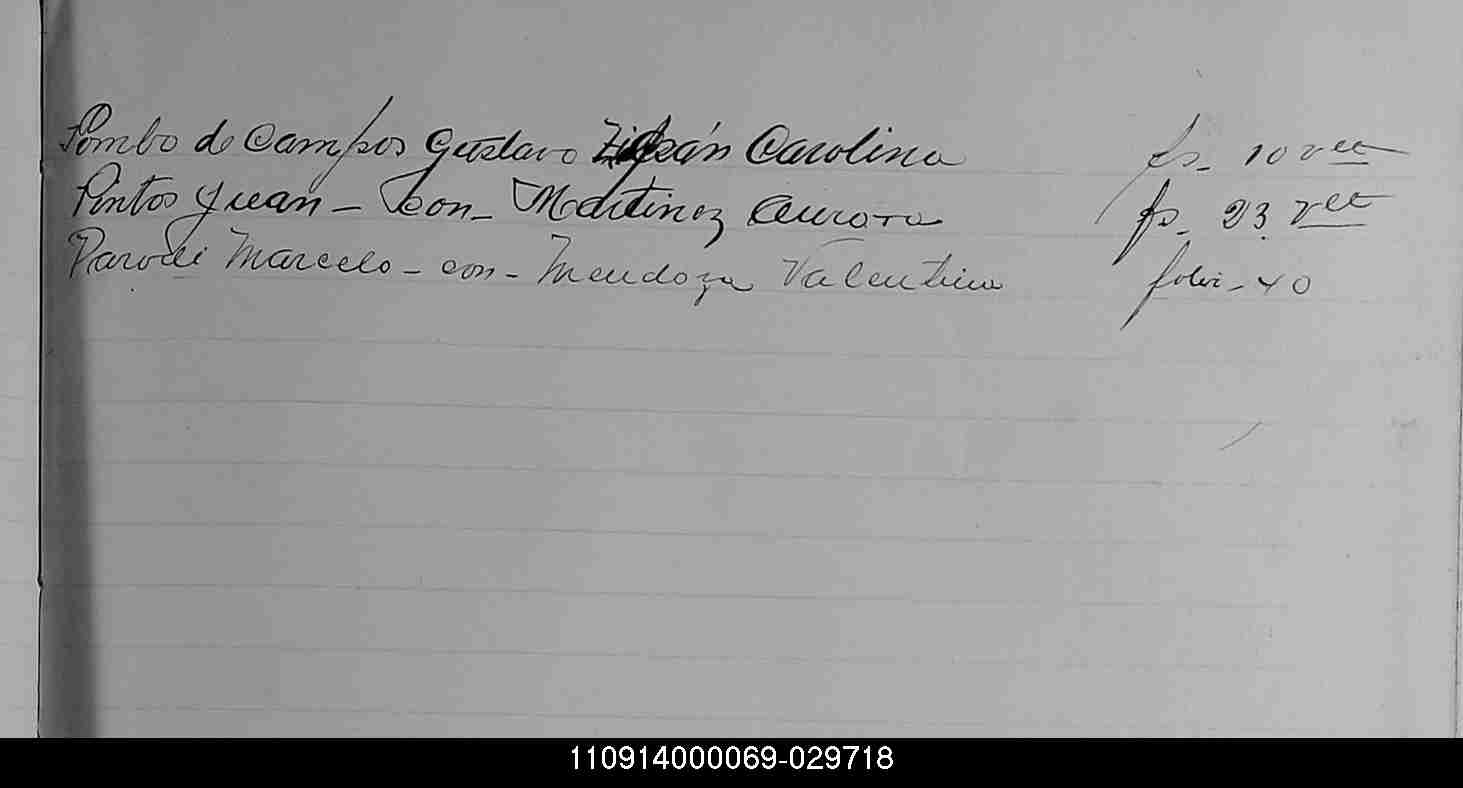 Pombo de Campos Gustavo Carolina fs_ 10 vta
Pintos Juan _ con _ Martinez Aurora fs_ 23 vta
Parodi Marcelo _ con _ Mendoza Valentina folio _ 40
110914000069-029718